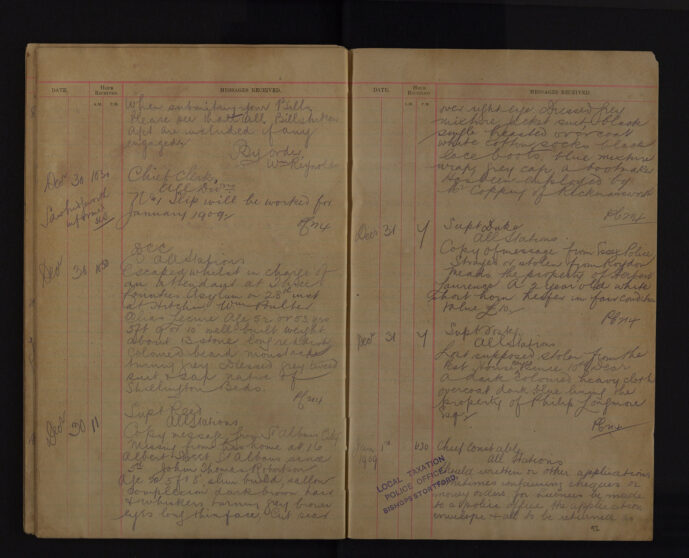 DATE.
HOUR RECEIVED.
MESSAGES RECEIVED.
A.M. P.M.
When submitting your Bills
Please see that all Bills
are included if any
engaged
By order
Wm Reynolds
Decr 30 10 30
Chief Clerk
All Divns
No 1 Slip will be worked for
January 1909
Decr 30 10 30
DCC
All Stations
Escaped whilst in charge of
an attendant at
Counties Asylum on 28th inst
at Hitchin Wm
Alias Age 52 or 53 yrs
5ft 9 or 10 well built weight
about 13 stone long
coloured beard moustache
turning grey Dressed grey tweed
suit & cap native of
Shillington Beds.
Decr 30 11
Supt Reed
All Stations
Copy message from St Albans City
Missing from his home at 16
Albert Street St Albans since
John Thomas Robertson
Age 5ft 8 slim build sallow
complexion dark brown hair
& whiskers turning grey brown
eyes long thin face, cut scar
DATE.
HOUR RECEIVED.
MESSAGES RECEIVED.
A.M. P.M.
over right eye Dressed grey
mixture jacket suit black
single breasted overcoat
white cotton socks black
lace boots, blue mixture
wrap, grey cap, a bootmaker
Has been employed by
Mr Copping of Rickmansworth
Decr 31
Supt Duke
All Stations
Copy of message from Essex Police
Strayed or stolen from Roydon
the property of
Laurence A 2 year old white
short horn heifer in fair condition
value £10
Decr 31
Supt
All Stations
Lost supposed stolen from the
House since 10th Decr
a dark coloured heavy cloth
overcoat dark blue lining the
property of Philip Longmore
Esqr
Jan 1st 1909
6 30
Chief Constable
All Stations
Should written or other applications
sometimes containing cheques or
money orders for licences be made
to a police office the application
envelope & all to be returned
LOCAL TAXATION
POLICE OFFICE
BISHOPS STORTFORD.